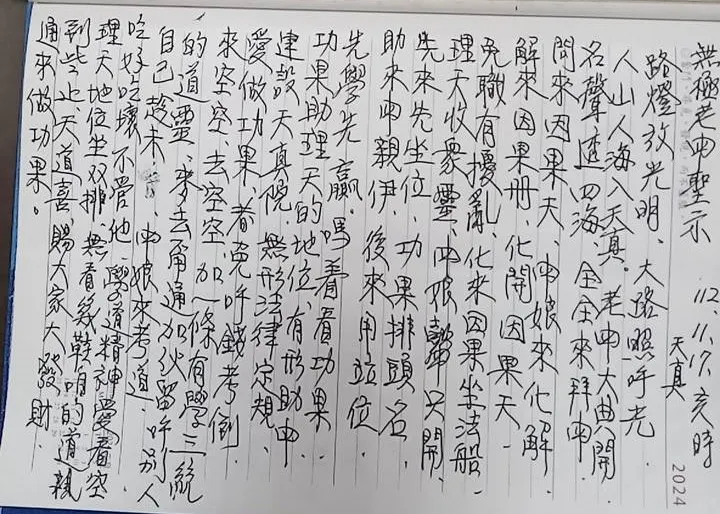 無極老中聖示 112.11.17.亥時
天真
路燈放光明、大路照呼光
人山人海入天真。老中大典開
名聲透四海、全全來拜中
問來因果夫、中娘來化解
解來因果冊、化開因果天
免職有擾亂、化來因果坐法船
理天收眾靈、中娘講只開
先來先坐位、功果排頭名
助來中親伊、後來用站位
先學先贏、嗎看看功果
功果助理天的地位、有形助中
建設天真院、無形法律定規
愛做功果、看克呼錢考倒
來空空、去空空、加一條有學三統
的道靈、來去甭通加伙留呼別人
自己趁未、中娘來考道
吃好吃壞不愛他、學道精神愛看空
理天地位坐双排、無看幾鞋咱的道親
到學止天道喜、賜大家大發財
通來做功果。
2024